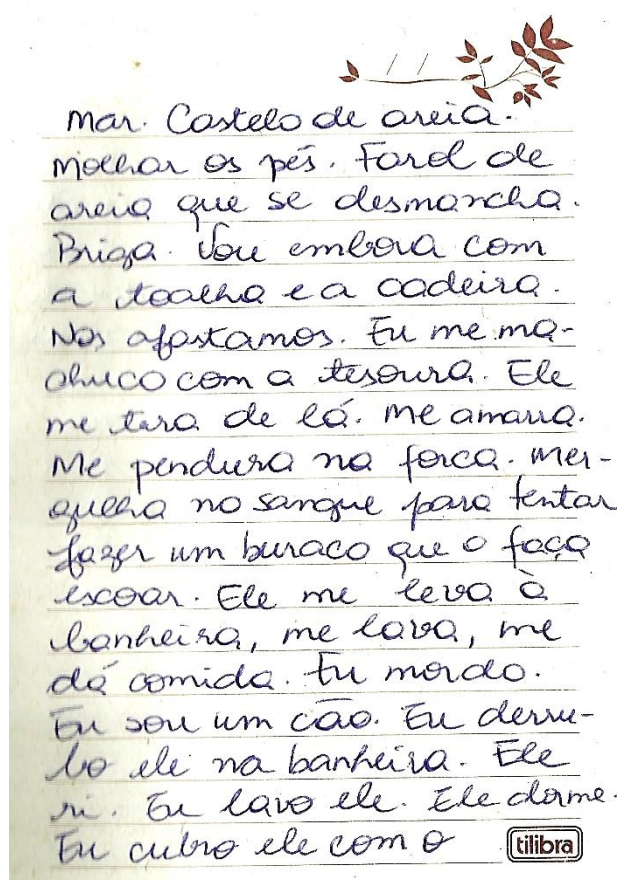 / /
Mar. Castelo de areia.
Molhar os pés. Farol de
areia que se desmancha.
Briga. Vou embora com
a toalha e a cadeira.
Nos afastamos. Eu me ma-
chuco com a tesoura. Ele
me tira de lá. Me amarra.
Me pendura na forca. Mer-
gulha no sangue para tentar
fazer um buraco que o faça
escoar. Ele me leva à
banheira, me lava, me
dá comida. Eu mordo.
Eu sou um cão. Eu derru-
bo ele na banheira. Ele
ri. Eu lavo ele. Ele dorme.
Eu cubro ele com o
tilibra